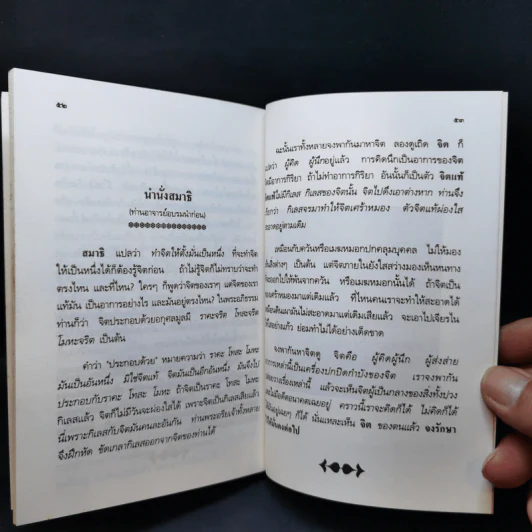 ๕๒
นำนั่งสมาธิ
(ท่านอาจารย์อบรมนำก่อน)
สมาธิ แปลว่า ทำจิตให้ตั้งมั่นเป็นหนึ่ง ที่จะทำจิต
ให้เป็นหนึ่งได้ก็ต้องรู้จิตก่อน ถ้าไม่รู้จิตก็ไม่ทราบว่าจะทำ
ตรงไหน และที่ไหน? ใครๆ ก็พูดว่าจิตของเราๆ แต่จิตของเรา
แท้มัน เป็นอาการอย่างไร และมันอยู่ตรงไหน? ในพระอภิธรรม
ท่านก็ว่า จิตประกอบด้วยอกุศลมูลมี ราคะจริต โทสะจริต
โมหะจริต เป็นต้น
คำว่า "ประกอบด้วย" หมายความว่า ราคะ โทสะ โมหะ
มันเป็นอันหนึ่ง มิใช่จิตแท้ จิตมันเป็นอีกอันหนึ่ง มันจึงไป
ประกอบกับราคะ โทสะ โมหะ ถ้าจิตเป็นราคะ โทสะ โมหะ
กิเลสแล้ว จิตก็ไม่มีวันจะผ่องใสได้ เพราะจิตเป็นกิเลสเสียแล้ว
นี่เพราะกิเลสกับจิตมันคนละอันกัน ท่านพระอริยเจ้าทั้งหลาย
จึงฝึกหัด ขัดเกลากิเลสออกจากจิตของท่านได้
๕๓
ฉะนั้นเราทั้งหลายจงพากันมาหาจิต ลองดูเถิด จิต ก็
แปลว่า ผู้คิด ผู้นึกอยู่แล้ว การคิดนึกเป็นอาการของจิต
อาการกิริยา ถ้าไม่ทำอาการกิริยา อันนั้นก็เป็นตัว จิตแท้
ไม่มีกิเลส กิเลสของจิตนั้น จิตไปดึงเอาต่างหาก ท่านจึง
เรียกว่า กิเลสจรมาทำให้จิตเศร้าหมอง ตัวจิตแท้ผ่องใส
อยู่ตามเดิม
เหมือนกับควันหรือเมฆหมอกปกคลุมบุคคล ไม่ให้มอง
สิ่งต่างๆ เป็นต้น แต่จิตภายในยังใสสว่างมองเห็นหนทาง
ออกไปให้พ้นจากควัน หรือเมฆหมอกนั้นได้ ถ้าจิตเป็น
ของเศร้าหมองมาแต่เดิมแล้ว ที่ไหนคนเราจะทำให้สะอาดได้
เหมือนเดิมมันไม่สะอาดมาแต่เดิมเสียแล้ว จะเอาไปเจียรไน
อย่างแก้ว ย่อมทำไม่ได้อย่างเด็ดขาด
จงพากันหาจิตดู จิตคือ ผู้คิดผู้นึก ผู้ส่งส่าย
อาการเหล่านี้เป็นเครื่องปกปิดกำบังของจิต เราจงพากัน
เรื่องเหล่านี้ แล้วจะเห็นจิตผู้เป็นกลางของสิ่งทั้งปวง
ไม่มีอดีตอนาคตเฉยอยู่ คราวนี้เราจะคิดก็ได้ ไม่คิดก็ได้
อยู่เฉยๆ ก็ได้ นั่นแหละเห็น จิต ของตนแล้ว จงรักษา
ต่อไป